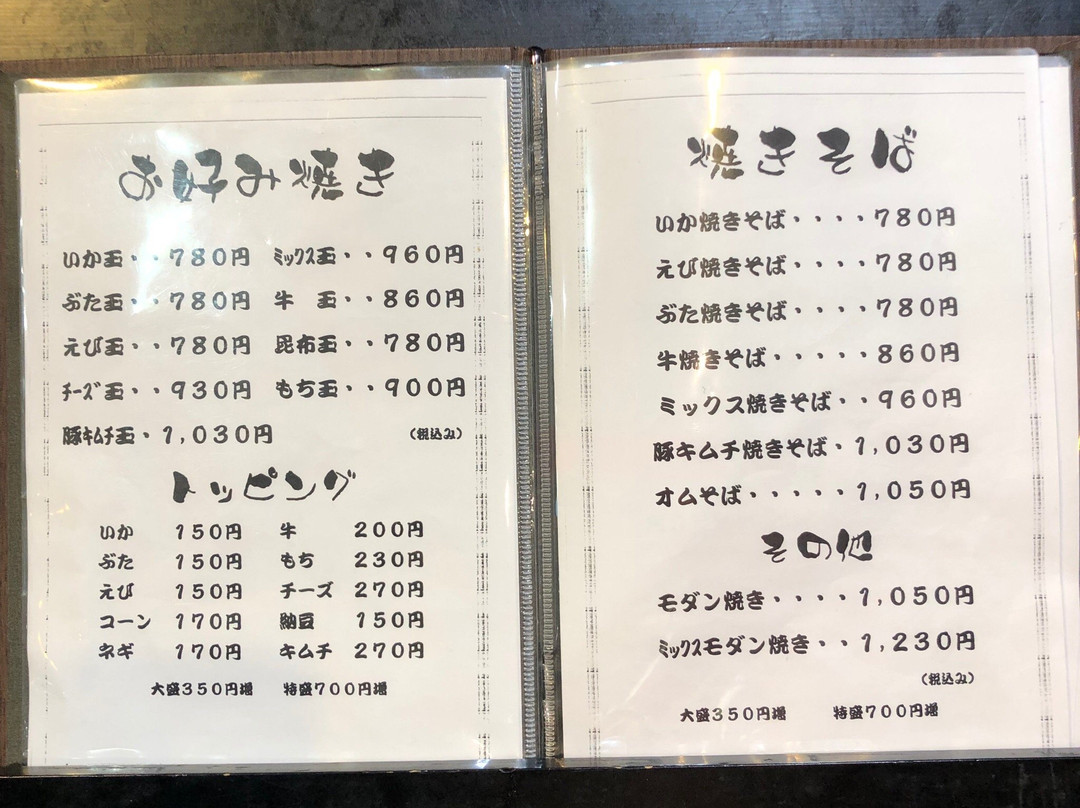 お好み焼き
いか玉・・７８０円 ミックス玉・・９６０円
ぶた玉・・７８０円 牛　玉・・８６０円
えび玉・・７８０円 昆布玉・・７８０円
チーズ玉・・９３０円 もち玉・・９００円
豚キムチ玉・１,０３０円 （税込み）
トッピング
いか １５０円 牛 ２００円
ぶた １５０円 もち ２３０円
えび １５０円 チーズ ２７０円
コーン １７０円 納豆 １５０円
ネギ １７０円 キムチ ２７０円
大盛３５０円増 特盛７００円増
焼きそば
いか焼きそば・・・・７８０円
えび焼きそば・・・・７８０円
ぶた焼きそば・・・・７８０円
牛焼きそば・・・・・８６０円
ミックス焼きそば・・９６０円
豚キムチ焼きそば・１,０３０円
オムそば・・・・・１,０５０円
その他
モダン焼き・・・・１,０５０円
ミックスモダン焼き・・１,２３０円
（税込み）
大盛３５０円増 特盛７００円増